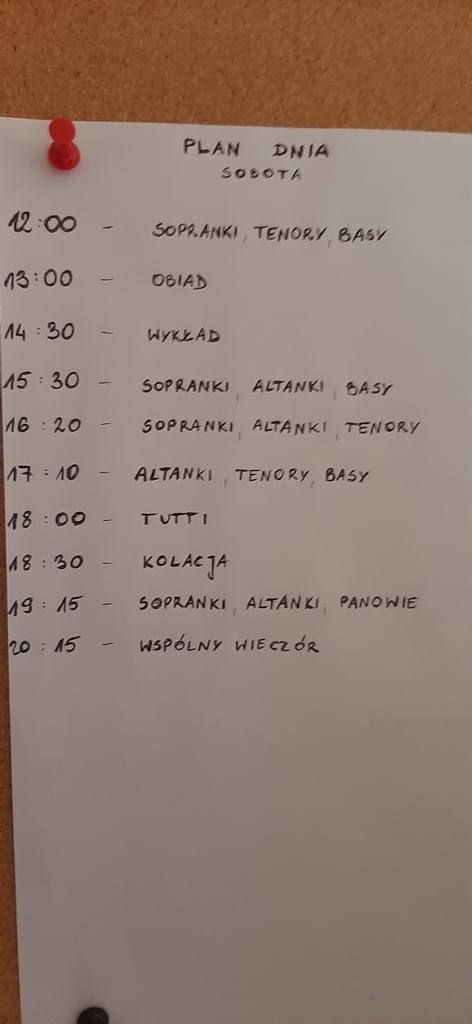 PLAN DNIA
SOBOTA
12:00 - SOPRANKI, TENORY, BASY
13:00 - OBIAD
14:30 - WYKŁAD
15:30 - SOPRANKI, ALTANKI, BASY
16:20 - SOPRANKI, ALTANKI, TENORY
17:10 - ALTANKI, TENORY, BASY
18:00 - TUTTI
18:30 - KOLACJA
19:15 - SOPRANKI, ALTANKI, PANOWIE
20:15 - WSPÓLNY WIECZÓR